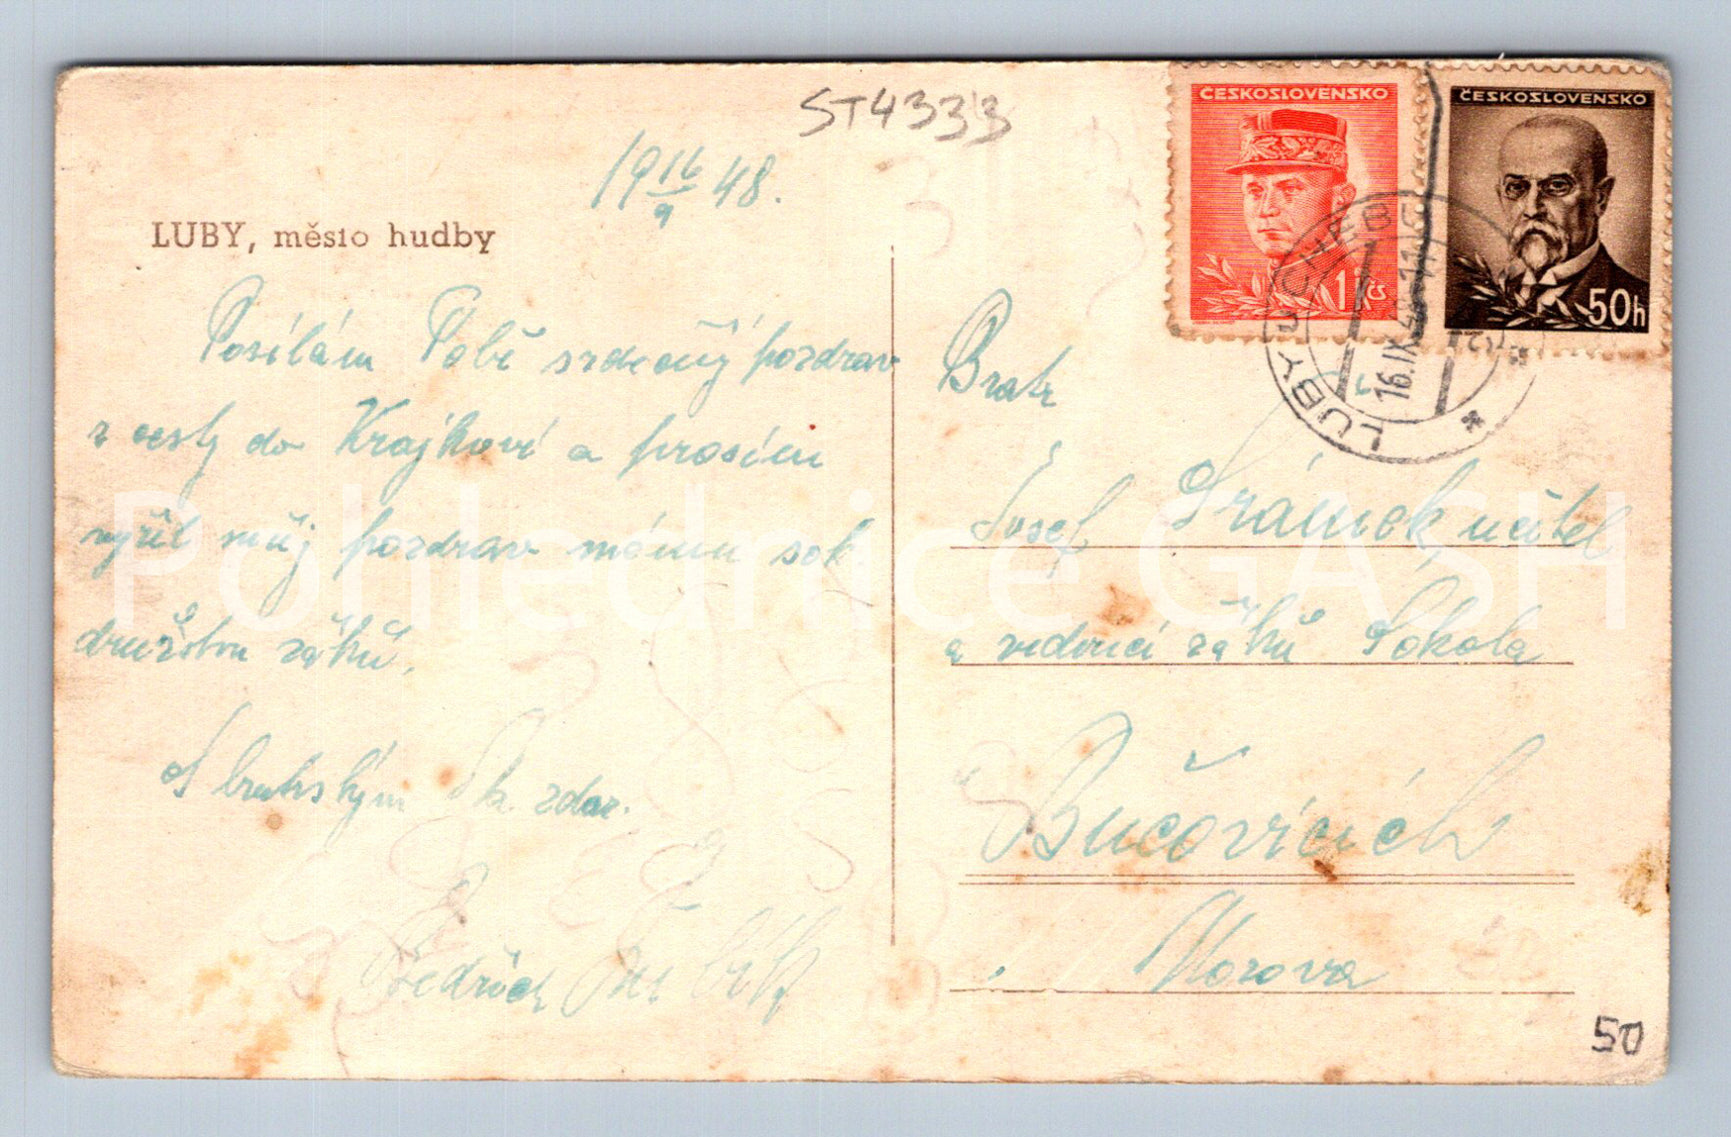 ST4333
19 16/9 48.
LUBY, město hudby
Posílám Tobě srdečný pozdrav
z cesty do Krajkové a prosím
vyřiď můj pozdrav mému sok.
družstvu žáků.
S bratrským Na zdar.
Bedřich
ČESKOSLOVENSKO
1 Kčs
ČESKOSLOVENSKO
50h
LUBY U CHEBU
16.IX.48-11
Bratr
Josef Srámek, učitel
a vedoucí žáků Sokola
Bučovicích
Morava
50
Pohlednice GASH